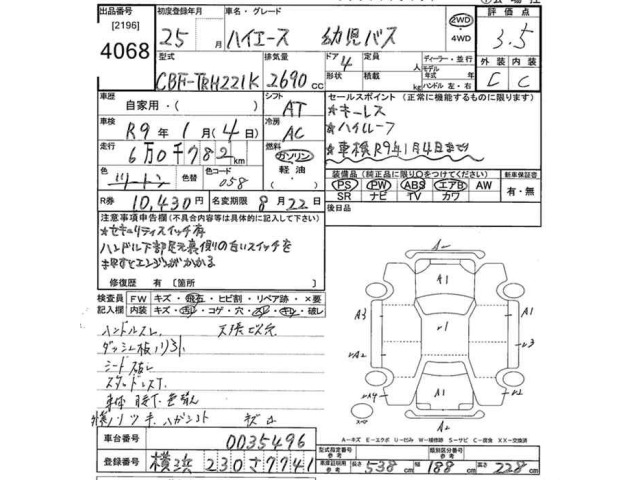 出品番号 初度登録年月 車名・グレード 2WD 評価点
[2196] 25 月 ハイエース 幼児バス 4WD 3.5
4068 型式 排気量 ドア 定員 ディーラー・並行 外装 内装
CBF-TRH221K 2690 CC 4 形状 積載 人 kg モデル年式 年 ハンドル 左・右 C C
車歴 自家用・( ) シフト AT セールスポイント (正常に機能するものに限ります)
車検 R9年 1月(4日) 冷房 AC ★キーレス
★ハイルーフ
走行 6万0千782 km 燃料 ガソリン 軽油 ★車検R9年1月4日まで
色 ツートン 色替 色コード 058 装備品 (純正品に限り○をつけてください) 新車保証書
PS PW ABS エアB AW 有・無
R券 10,430円 名変期限 8月22日 SR ナビ TV カワ
注意事項申告欄 (不具合内容等は具体的に記入して下さい) 後日品
★セキュリティスイッチ有
ハンドル下部足元裏側の白いスイッチを
押すとエンジンがかかる
修復歴 有 [箇所 ]
検査員 FW キズ・飛石・ヒビ割・リペア跡・×要
記入欄 内装 キズ・汚れ・コゲ・穴・キレ・破レ
ハンドルスレ
シート破レ
A A1 A3 A1 A1 A2
スペア
A-キズ E-エクボ U-凹み W-補修跡 S-サビ C-腐食 XX-交換済
車台番号 0035496 型式指定番号 参考 類別区分番号 参考
登録番号 横浜 230 さ 7741 車庫証明用 参考 長さ 538 cm 幅 188 cm 高さ 228 cm